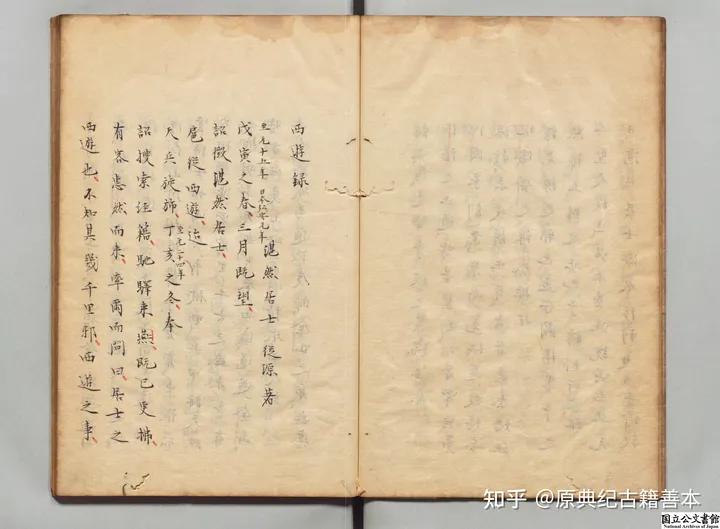 西遊録
湛然居士 從源著
至元十五年 日本弘安元年
戊寅之春、三月既望、
詔徵湛然居士、
扈從西遊、迨
至元二十四年
天兵旋旆、丁亥之冬、奉
詔搜索經籍、馳驛來燕、既已更拂
有客惠然而來、率爾而問曰、居士之
西遊也、不知其幾千里邪、西遊之事、
知乎 @原典纪古籍善本
国立公文書館
National Archives of Japan